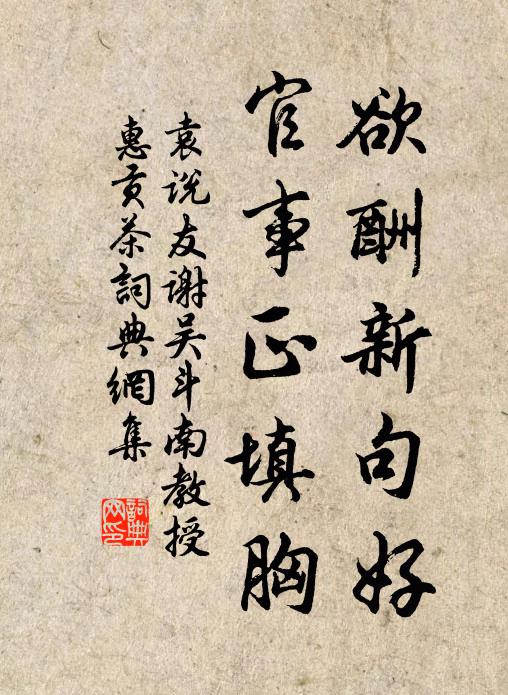 欲酬新句好
官事正填胸
袁说友谢吴斗南教授
惠贡茶詞典網集
詞典网印